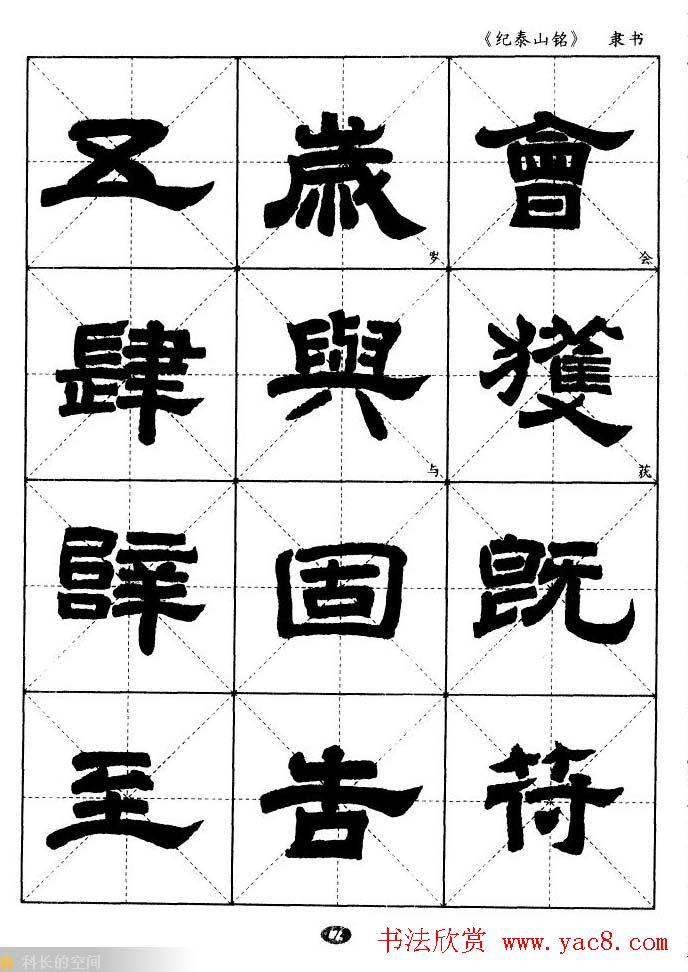 《纪泰山铭》 隶书
會会
獲获
既
符
歲岁
與与
固
告
五
肆
辟
至
书法欣赏 www.yac8.com
科长的空间